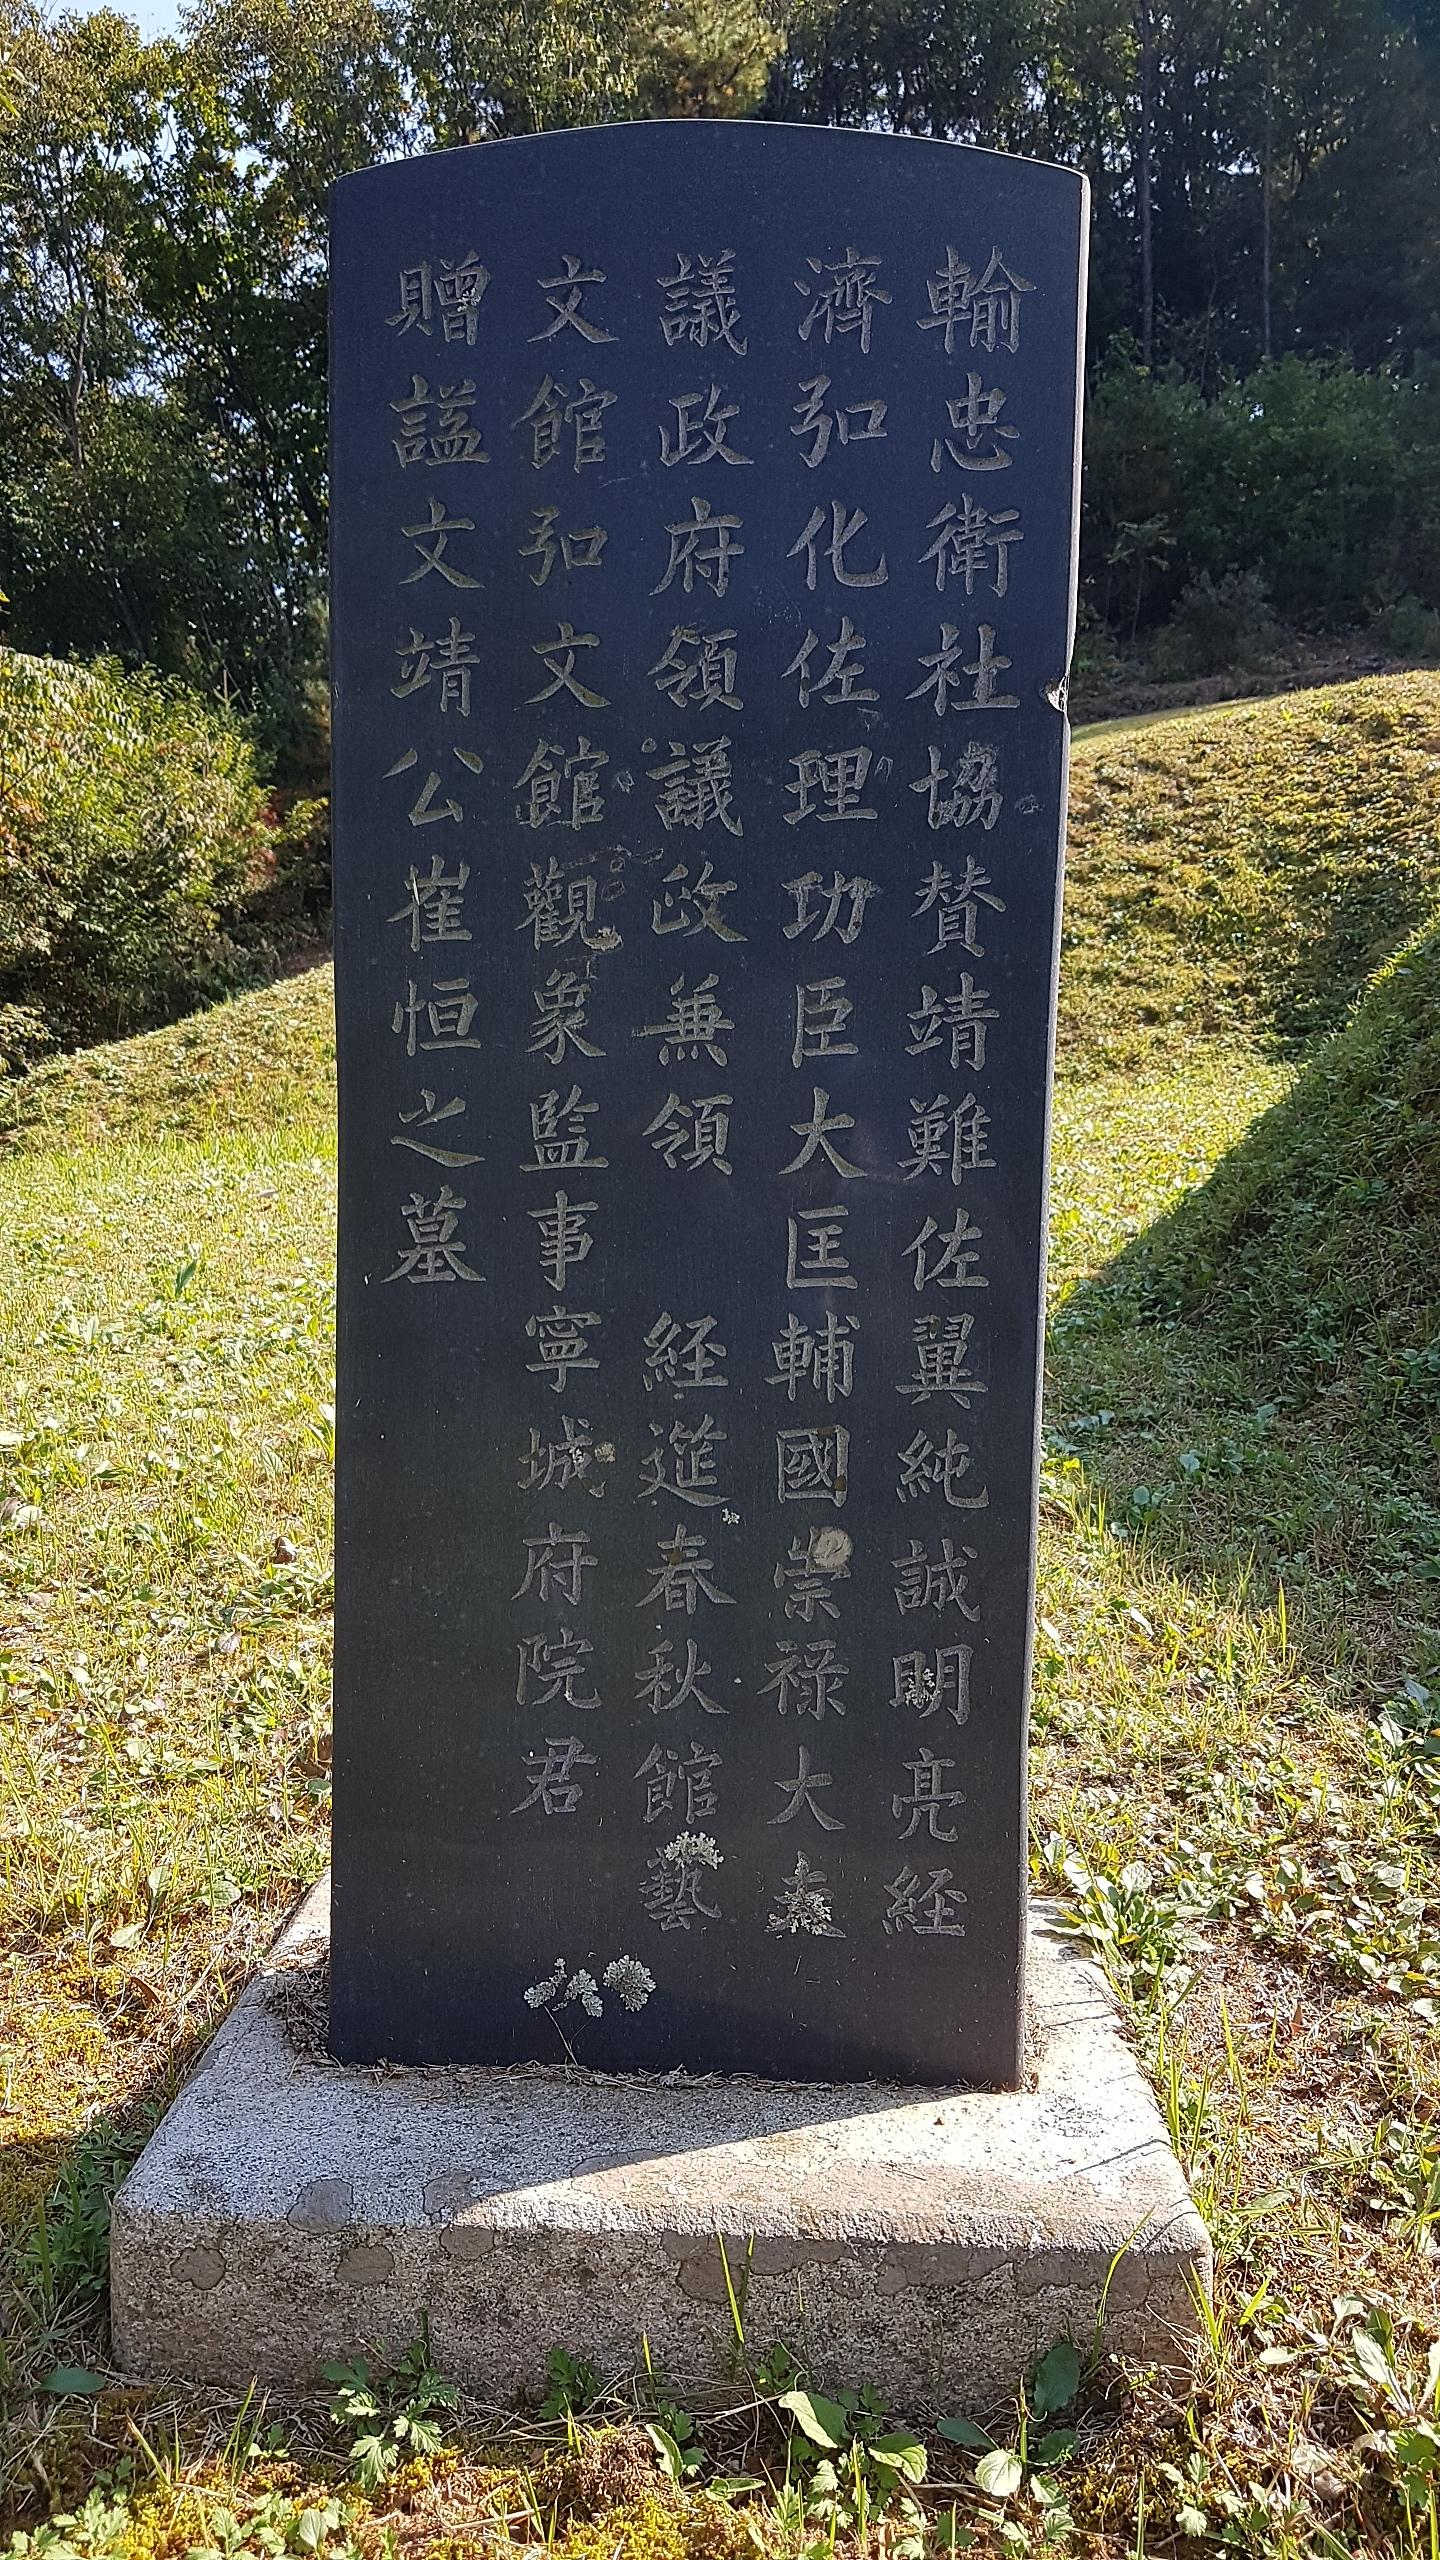 輸忠衛社協賛靖難佐翼純誠明亮経
濟弘化佐理功臣大匡輔國崇祿大夫
議政府領議政兼領 経筵春秋館藝
文館弘文館觀象監事寧城府院君
贈謚文靖公崔恒之墓